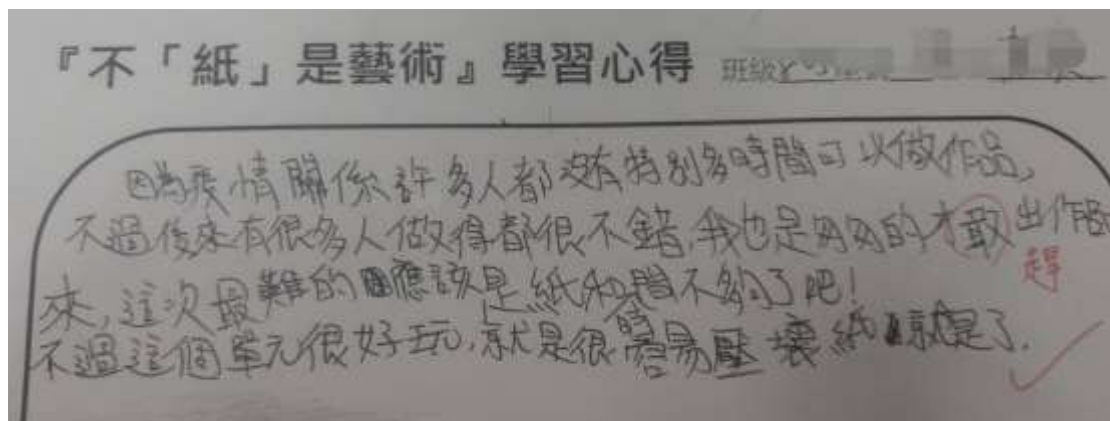 『不「紙」是藝術』學習心得 班級
因為疫情關係許多人都沒有特別多時間可以做作品,
不過後來有很多人做得都很不錯,我也是匆匆的才敢出作品
趕
來,這次最難的應該是紙和時間不夠了吧!
不過這個單元很好玩,就是很容易壓壞紙就是了.